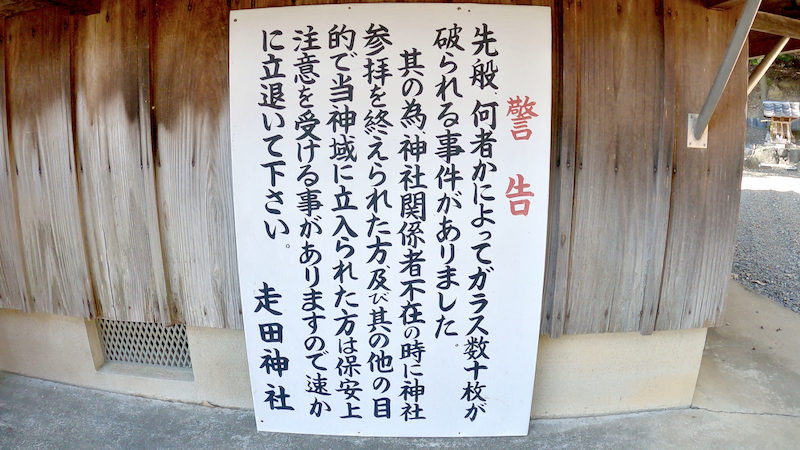 警告
先般、何者かによってガラス数十枚が
破られる事件がありました。
其の為、神社関係者不在の時に神社
参拝を終えられた方及び其の他の目
的で当神域に立入られた方は保安上
注意を受ける事がありますので速か
に立退いて下さい。
走田神社